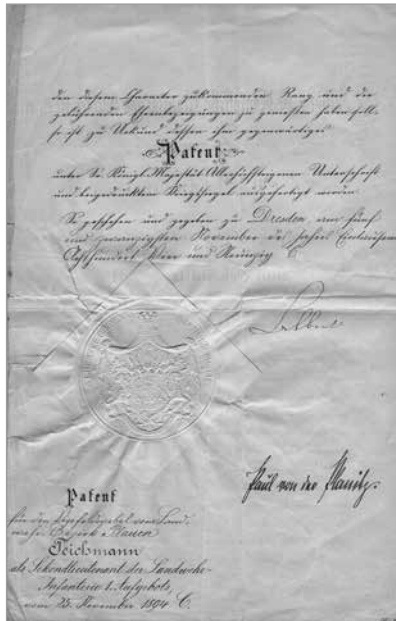 den diesem Charakter zukommenden Rang und die
gebührenden Ehrenbezeigungen zu genießen haben soll,
so ist zu Urkund dessen ihm gegenwärtiges
Patent
unter Sr. Königl. Majestät Allerhöchsteigenen Unterschrift
und beigedrucktem Kriegssiegel ausgefertigt worden.
So geschehen und gegeben zu Dresden, am fünf
und zwanzigsten November des Jahres Eintausend
Achthundert Vier und Neunzig
Albert
Paul von der Planitz.
Patent
für den Vizefeldwebel vom Land-
wehr-Bezirk Plauen
Teichsmann
als Sekondlieutenant der Landwehr-
Infanterie 1. Aufgebots,
vom 25. November 1894